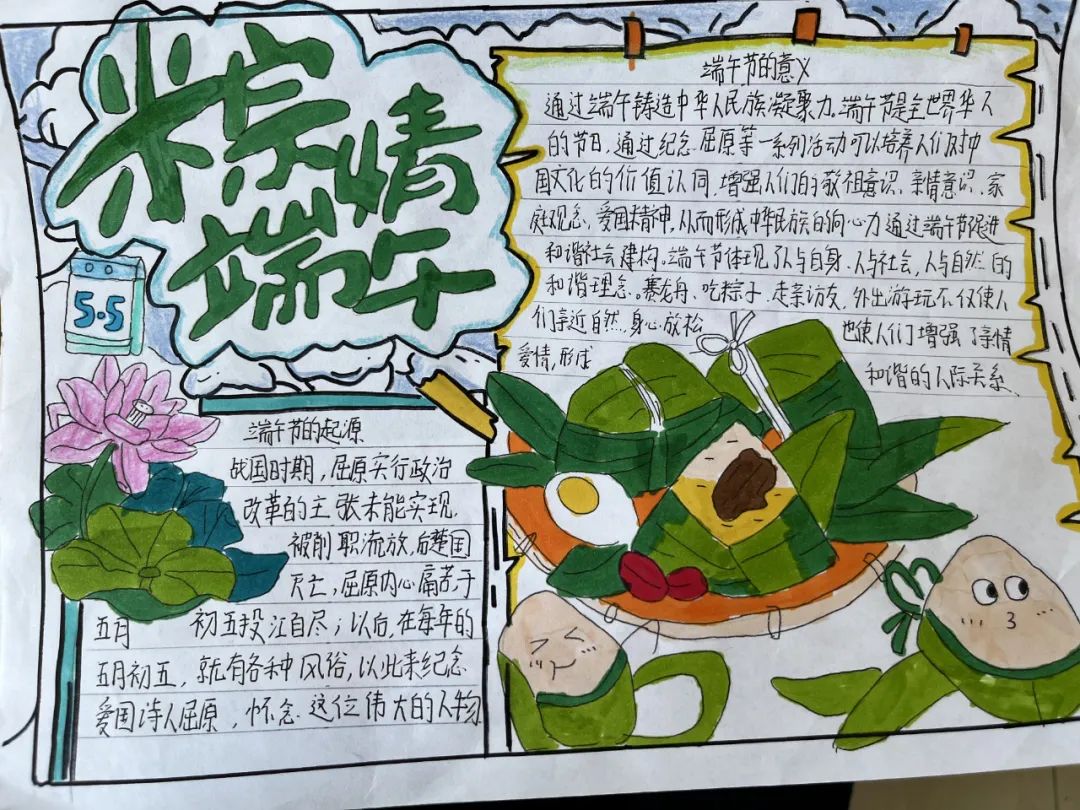 粽情
端午
5.5
端午节的意义
通过端午铸造中华人民族凝聚力。端午节是全世界华人
的节日,通过纪念屈原等一系列活动可以培养人们对中
国文化的价值认同,增强人们的敬祖意识、亲情意识、家
庭观念、爱国精神,从而形成中华民族的向心力通过端午节促进
和谐社会建构。端午节体现了人与自身、人与社会,人与自然的
和谐理念。赛龙舟、吃粽子、走亲访友、外出游玩不仅使人
们亲近自然,身心放松 也使人们增强了亲情
爱情,形成 和谐的人际关系
端午节的起源
战国时期,屈原实行政治
改革的主张未能实现
被削职流放,后楚国
灭亡,屈原内心痛苦,于
五月 初五投江自尽;以后,在每年的
五月初五,就有各种风俗,以此来纪念
爱国诗人屈原,怀念这位伟大的人物